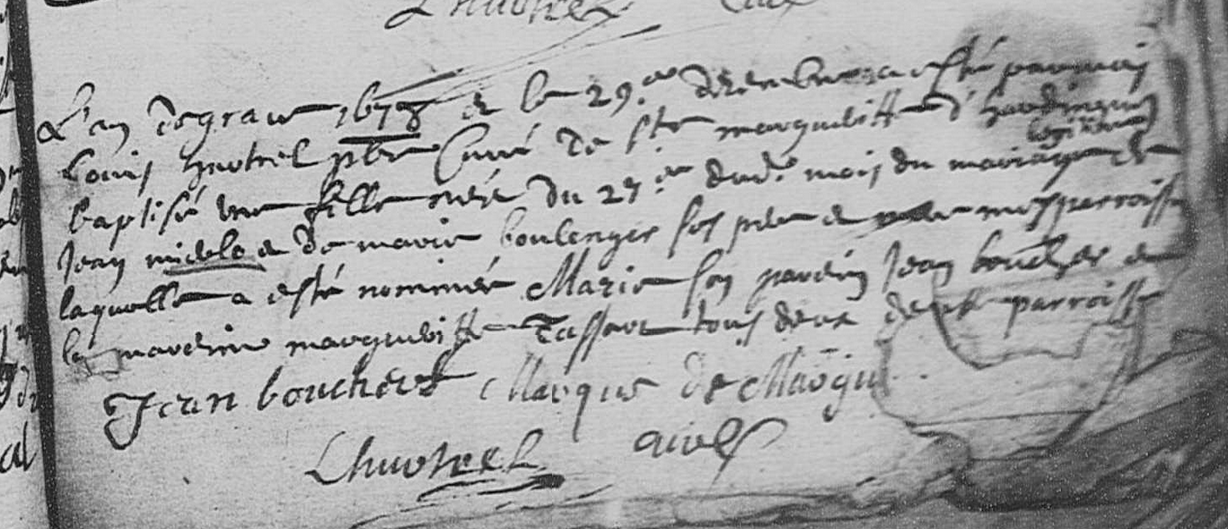 L'an de grace 1678 & le 29.me decembre a esté par moy
Louis huotrel pbre Curé de Ste margueritte d'haudinquen
legitime
baptisé une fille née du 27.me dud. mois du mariage de
Jean miclo & de marie boulenger ses pere & mere mes parroiss
laquelle a esté nommée Marie son parein Jean boucher &
la mareine margueritte Tassart tous deux de parroisse
Jean boucher Marque de Margu
Lhuotrel curé